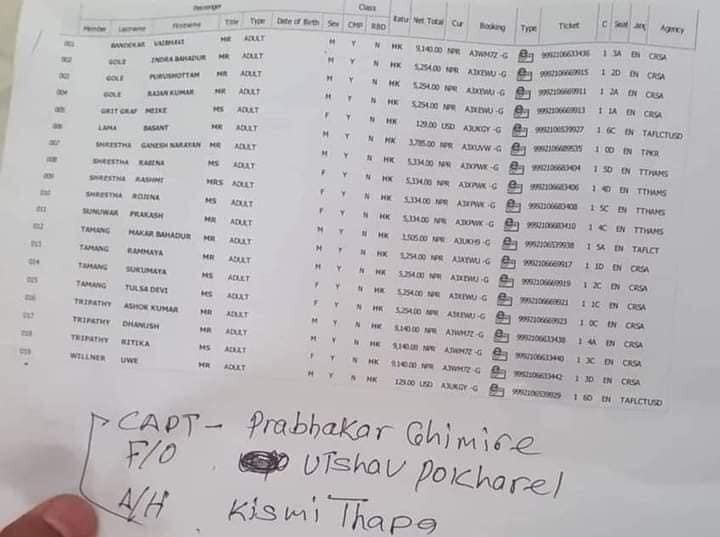 Passenger Class
Member Lastname Firstname Title Type Date of Birth Sex CMP RBD Statu Net Total Cur Booking Type Ticket C Seat Agency
001 BANDEKAR VAIBHAVI MR ADULT M Y N HK 9,140.00 NPR A3WM7Z -G 9992106633436 1 3A EN CRSA
002 GOLE INDRA BAHADUR MR ADULT M Y N HK 5,254.00 NPR A3XEWU -G 9992106669915 1 2D EN CRSA
003 GOLE PURUSHOTTAM MR ADULT M Y N HK 5,254.00 NPR A3XEWU -G 9992106669911 1 2A EN CRSA
004 GOLE RAJAN KUMAR MR ADULT M Y N HK 5,254.00 NPR A3XEWU -G 9992106669913 1 1A EN CRSA
005 GRIT GRAF MEIKE MS ADULT F Y N HK 129.00 USD A3UKGY -G 9992106539927 1 6C EN TAFLCTUSD
006 LAMA BASANT MR ADULT M Y N HK 3,785.00 NPR A3XUVW -G 9992106689535 1 0D EN TPKR
007 SHRESTHA GANESH NARAYAN MR ADULT M Y N HK 5,334.00 NPR A3XPWK -G 9992106683404 1 5D EN TTHAMS
008 SHRESTHA RABENA MS ADULT F Y N HK 5,334.00 NPR A3XPWK -G 9992106683406 1 4D EN TTHAMS
009 SHRESTHA RASHMI MRS ADULT F Y N HK 5,334.00 NPR A3XPWK -G 9992106683408 1 5C EN TTHAMS
010 SHRESTHA ROJINA MS ADULT F Y N HK 5,334.00 NPR A3XPWK -G 9992106683410 1 4C EN TTHAMS
011 SUNUWAR PRAKASH MR ADULT M Y N HK 3,505.00 NPR A3UKH9 -G 9992106539938 1 5A EN TAFLCT
012 TAMANG MAKAR BAHADUR MR ADULT M Y N HK 5,254.00 NPR A3XEWU -G 9992106669917 1 1D EN CRSA
013 TAMANG RAMMAYA MS ADULT F Y N HK 5,254.00 NPR A3XEWU -G 9992106669919 1 2C EN CRSA
014 TAMANG SUKUMAYA MS ADULT F Y N HK 5,254.00 NPR A3XEWU -G 9992106669921 1 1C EN CRSA
015 TAMANG TULSA DEVI MS ADULT F Y N HK 5,254.00 NPR A3XEWU -G 9992106669923 1 0C EN CRSA
016 TRIPATHY ASHOK KUMAR MR ADULT M Y N HK 9,140.00 NPR A3WM7Z -G 9992106633438 1 4A EN CRSA
017 TRIPATHY DHANUSH MR ADULT M Y N HK 9,140.00 NPR A3WM7Z -G 9992106633440 1 3C EN CRSA
018 TRIPATHY RITIKA MS ADULT F Y N HK 9,140.00 NPR A3WM7Z -G 9992106633442 1 3D EN CRSA
019 WILLNER UWE MR ADULT M Y N HK 129.00 USD A3UKGY -G 9992106539929 1 6D EN TAFLCTUSD
CAPT - Prabhakar Ghimire
F/O Utshav Pokharel
A/H Kismi Thapa